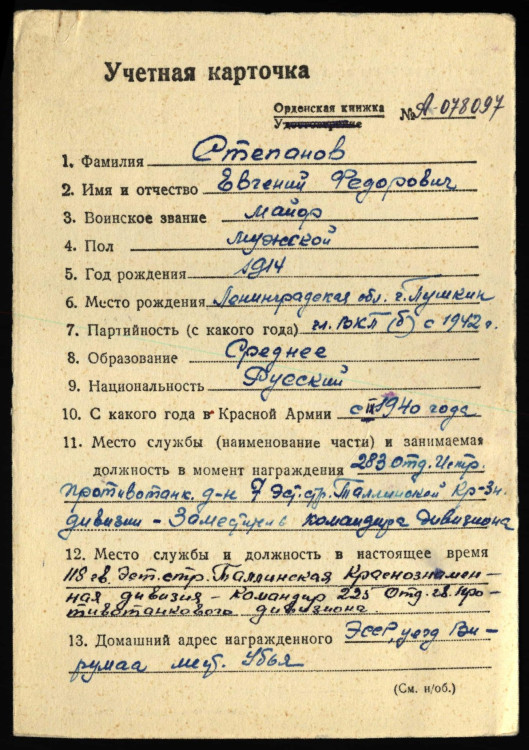 Учетная карточка
Орденская книжка
Удостоверение
№ А-078097
1. Фамилия Степанов
2. Имя и отчество Евгений Федорович
3. Воинское звание майор
4. Пол мужской
5. Год рождения 1914
6. Место рождения Ленинградская обл. г. Пушкин
7. Партийность (с какого года) чл. ВКП(б) с 1942 г.
8. Образование Среднее
9. Национальность Русский
10. С какого года в Красной Армии с III 1940 года
11. Место службы (наименование части) и занимаемая
должность в момент награждения 283 отд. Истр.
противотанк. д-н 7 Эст. стр. Таллинской Кр-Зн.
дивизии - Заместитель командира дивизиона
12. Место службы и должность в настоящее время
118 гв. Эст. стр. Таллинская Краснознамен-
ная дивизия - командир 225 Отд. гв. про-
тивотанкового дивизиона
13. Домашний адрес награжденного ЭССР, уезд Ви-
румаа мест. Убья
(См. н/об.)